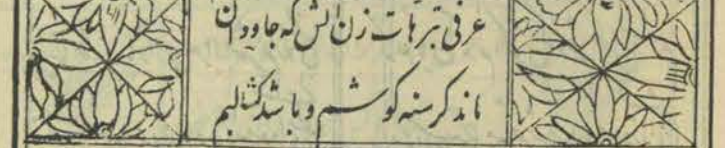 عرفی ترهات زن الش که جاودان
ماند کرسنه کوشم و باشد کشالبم